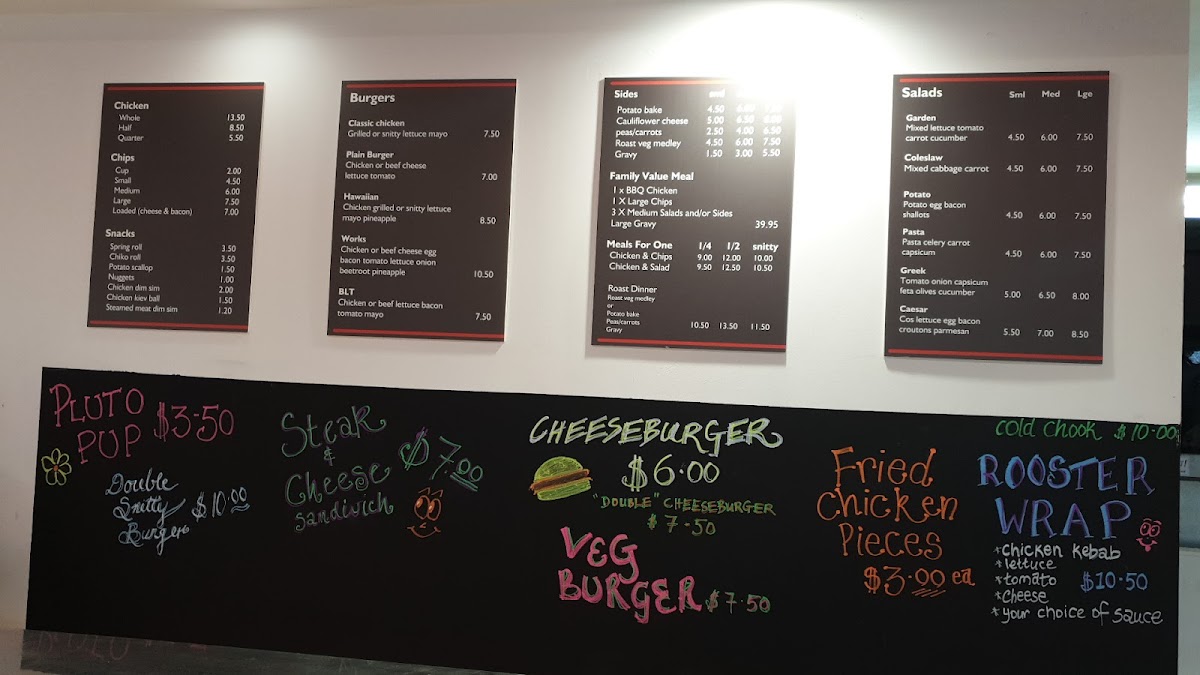 Chicken
Whole 13.50
Half 8.50
Quarter 5.50
Chips
Cup 2.00
Small 4.50
Medium 6.00
Large 7.50
Loaded (cheese & bacon) 7.00
Snacks
Spring roll 3.50
Chiko roll 3.50
Potato scallop 1.50
Nuggets 1.00
Chicken dim sim 2.00
Chicken kiev ball 1.50
Steamed meat dim sim 1.20
Burgers
Classic chicken
Grilled or snitty lettuce mayo 7.50
Plain Burger
Chicken or beef cheese
lettuce tomato 7.00
Hawaiian
Chicken grilled or snitty lettuce
mayo pineapple 8.50
Works
Chicken or beef cheese egg
bacon tomato lettuce onion
beetroot pineapple 10.50
BLT
Chicken or beef lettuce bacon
tomato mayo 7.50
Sides
Potato bake 4.50 6.00 7.50
Cauliflower cheese 5.00 6.50 8.00
peas/carrots 2.50 4.00 6.50
Roast veg medley 4.50 6.00 7.50
Gravy 1.50 3.00 5.50
Family Value Meal
1 x BBQ Chicken
1 X Large Chips
3 X Medium Salads and/or Sides
Large Gravy 39.95
Meals For One 1/4 1/2 snitty
Chicken & Chips 9.00 12.00 10.00
Chicken & Salad 9.50 12.50 10.50
Roast Dinner
Roast veg medley
or
Potato bake
Peas/carrots
Gravy 10.50 13.50 11.50
Salads Sml Med Lge
Garden
Mixed lettuce tomato
carrot cucumber 4.50 6.00 7.50
Coleslaw
Mixed cabbage carrot 4.50 6.00 7.50
Potato
Potato egg bacon
shallots 4.50 6.00 7.50
Pasta
Pasta celery carrot
capsicum 4.50 6.00 7.50
Greek
Tomato onion capsicum
feta olives cucumber 5.00 6.50 8.00
Caesar
Cos lettuce egg bacon
croutons parmesan 5.50 7.00 8.50
PLUTO
PUP $3.50
Double
Snitty
Burger $10.00
Steak
&
Cheese
Sandwich $7.00
CHEESEBURGER
$6.00
"DOUBLE" CHEESEBURGER
$7.50
VEG
BURGER $7.50
Fried
Chicken
Pieces
$3.00 ea
Cold Chook $10.00
ROOSTER
WRAP
*chicken kebab
*lettuce
*tomato $10.50
*cheese
*your choice of sauce